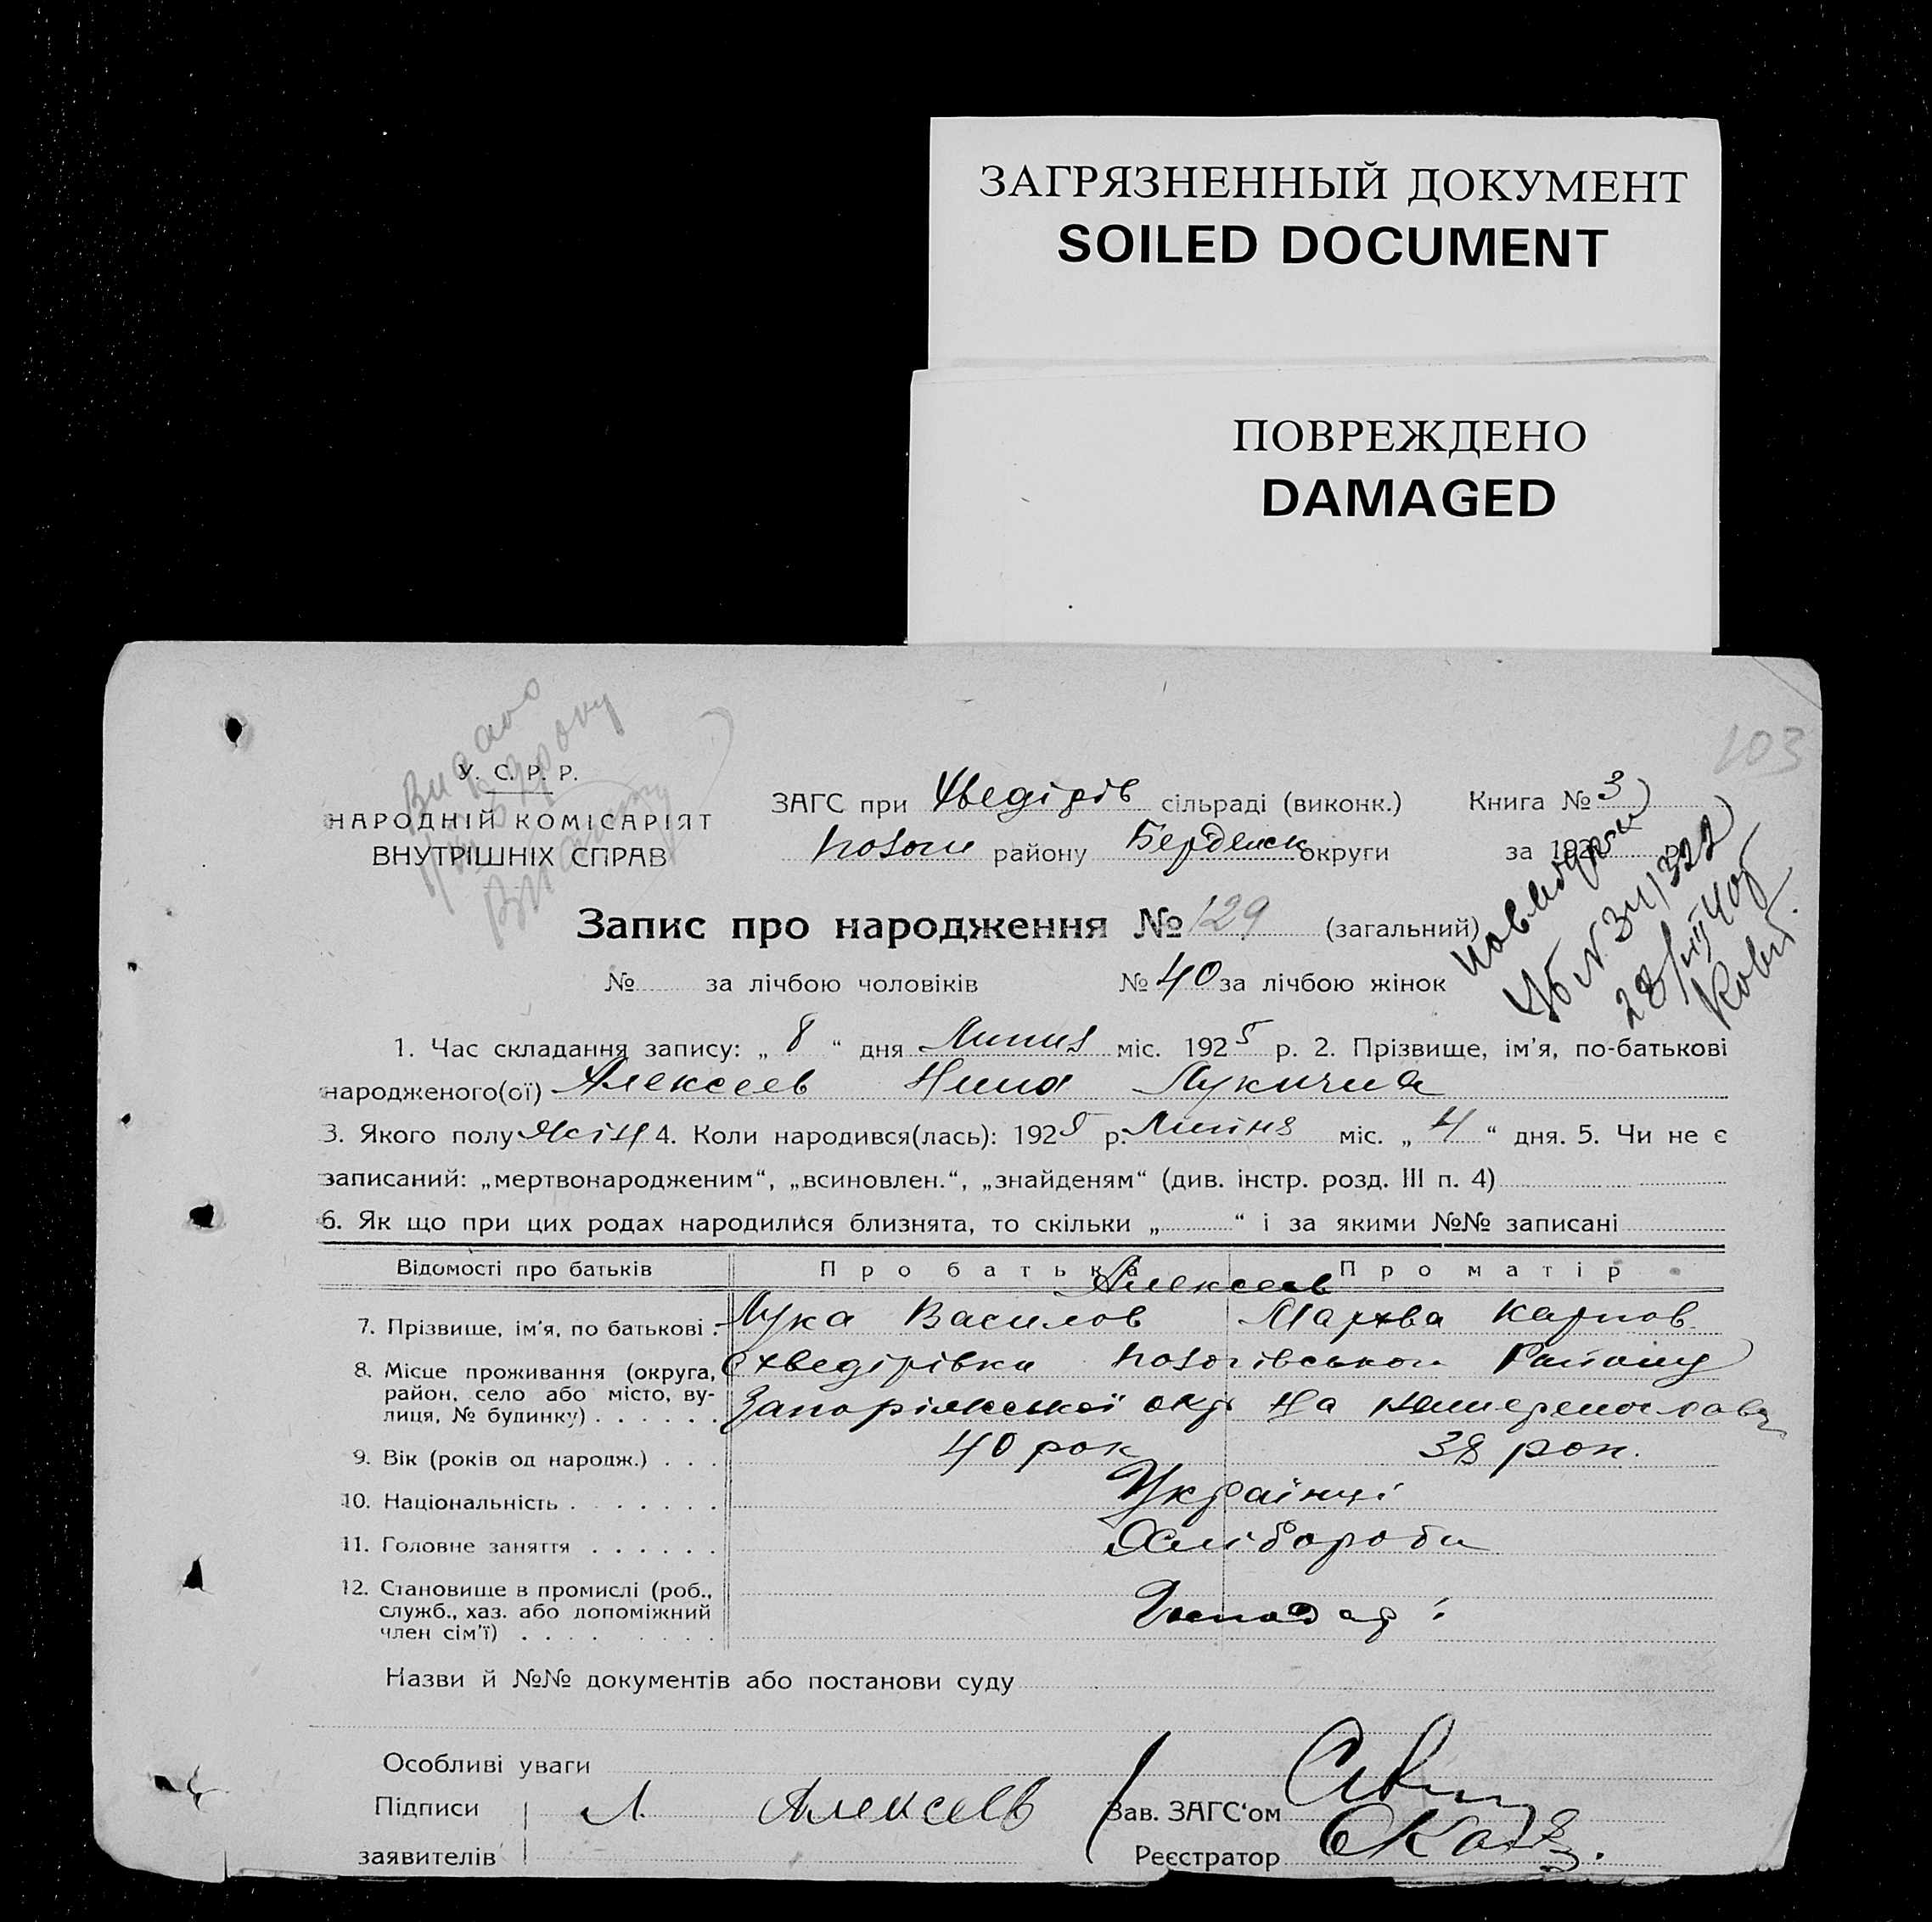 ЗАГРЯЗНЕННЫЙ ДОКУМЕНТ
SOILED DOCUMENT
ПОВРЕЖДЕНО
DAMAGED
103
У. С. Р. Р.
НАРОДНІЙ КОМІСАРІЯТ
ВНУТРІШНІХ СПРАВ
ЗАГС при Хведірів сільраді (виконк.) Книга № 3
району Бердянск округи за 192 р.
Запис про народження № 129 (загальний)
№ за лічбою чоловіків № 40 за лічбою жінок
1. Час складання запису: „ 8 “ дня Липня міс. 1925 р. 2. Прізвище, ім’я, по-батькові
народженого(ої) Алексеев Нина Лукична
3. Якого полу жін 4. Коли народився(лась): 1925 р. Липня міс. „ 4 “ дня. 5. Чи не є
записаний: „мертвонародженим“, „всиновлен.“, „знайденям“ (див. інстр. розд. III п. 4)
6. Як що при цих родах народилися близнята, то скільки „ “ і за якими №№ записані
Відомості про батьків Про батька Про матір
Алексеев
7. Прізвище, ім’я, по батькові . Лука Василов Мархва Карпов
8. Місце проживання (округа, Хведірівка Району
район, село або місто, ву- Запоріжської окр На
лиця, № будинку) . . . . . .
9. Вік (років од народж.) . . . 40 рок 38 рок.
10. Національність . . . . . . . Українці
11. Головне заняття . . . . . . Хлібороби
12. Становище в промислі (роб.,
служб., хаз. або допоміжний Господарі
член сім’ї) . . . . . . . .
Назви й №№ документів або постанови суду
Особливі уваги
Підписи Л. Алексеев Зав. ЗАГС‘ом
заявителів Реєстратор